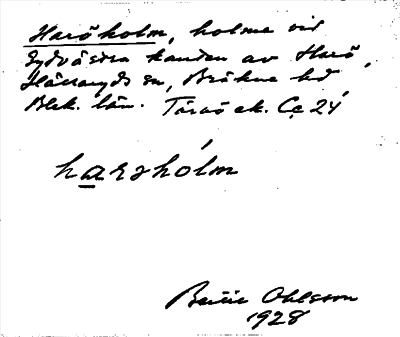 Haröholm, holme vid
sydvästra kanten av Harö,
Hällaryds sn, Bräkne hd
Blek. län. Tärnö ek. Cc 24
harəhòlm
Bertil Ohlsson
1928